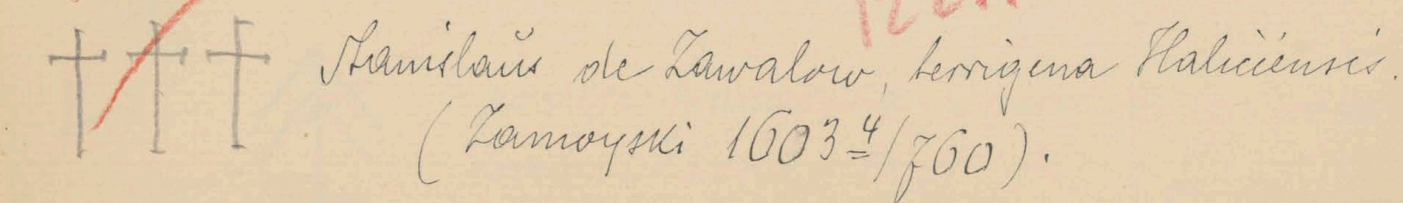 Stanislaus de Zawalow, terrigena Haliciensis.
(Zamoyski 1603 4/760).